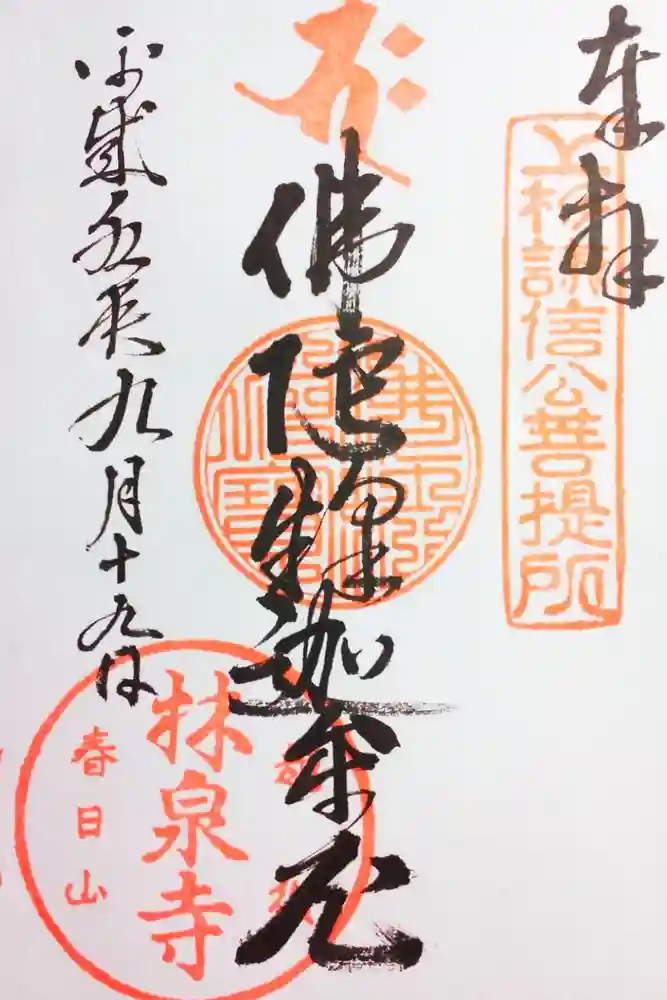 奉拝
上杉謙信公菩提所
佛陀釋迦牟尼
平成 年九月十九日
林泉寺
春日山